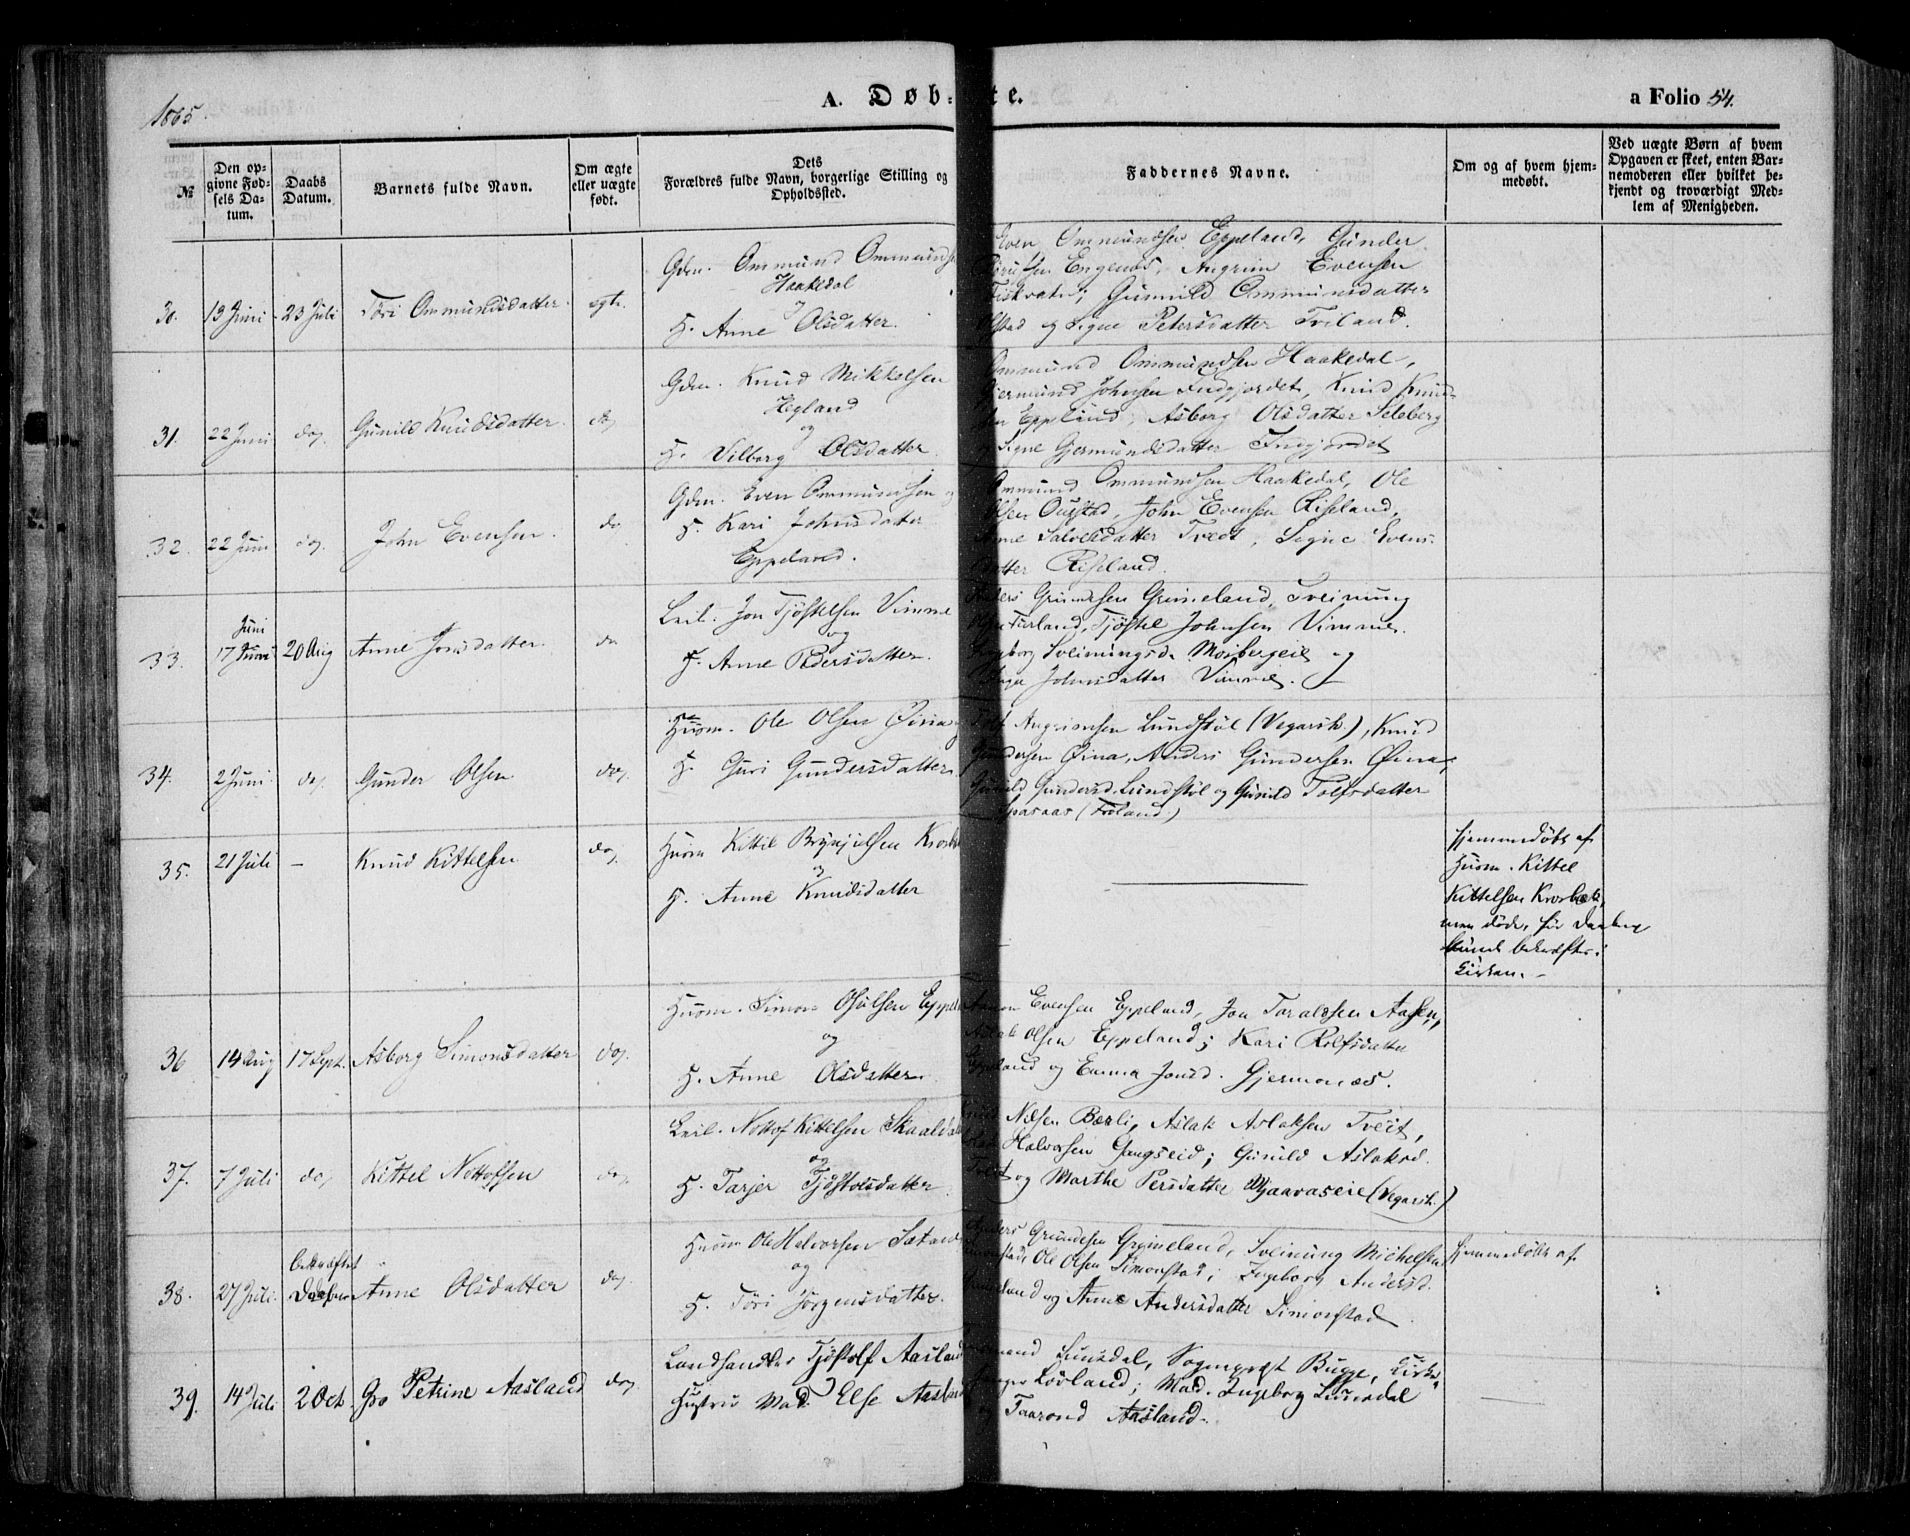 1865.
A. Døb-te.
a Folio 54.
№
Den opgivne Fødsels Datum.
Daabs Datum.
Barnets fulde Navn.
Om ægte eller uægte født.
Dets Forældres fulde Navn, borgerlige Stilling og Opholdssted.
Faddernes Navne.
Om og af hvem hjemmedøbt.
Ved uægte Børn af hvem Opgaven er skeet, enten Barnemoderen eller hvilket bekjendt og troværdigt Medlem af Menigheden.
30. 13 Juni 23 Juli Töri Ommundsdatter. egte.
Gdm. Ommund Ommunds
Haakedal
og
H. Anne Olsdatter.
Even Ommundsen Eppeland, Gunder
Engenes, Angrim Evensen
Gunild Ommunsdatter
og Signe Petersdatter Friland.
31. 22 Juni do, Gunild Knudsdatter. do,
Gdm. Knud Mikkelsen
Hegland
og
H. Vilborg Olsdatter.
Ommund Ommundsen Haakedal,
Gjermund Johnsen Indgjordet, Knud Knud-
sen Eppeland, Asborg Olsdatter Seleberg
Signe Gjermundsdatter Indgjordet
32. 22 Juni do, John Evensen. do
Gdm. Even Ommundsen og
H. Kari Johnsdatter
Eppeland.
Ommund Ommundsen Haakedal, Ole
Olsen Oustad, John Evensen Riseland,
Anne Salvesdatter Tvedt, Signe Evens-
datter Riseland.
33. Juni 17 Juni 20 Aug Anne Jonsdatter do
Leil. Jon Tjöstelsen Vimme
og
H. Anne Pedersdatter.
Anders Grundesen Grimeland, Sveinung
Tjöstel Johnsen Vimme.
Ingeborg Sveinungsd. og
Johnsdatter Vimme.
34. 2 Juni do, Gunder Olsen do,
Huusm. Ole Olsen Öina
H. Guri Gundersdatter
Angrimsen Lundstöl (Vegarsh.), Knud
Gundersen Öina, Anders Gundersen Öina,
Gunild Gundersd. Lundstöl og Gunild Tolfsdatter
(Froland.)
35. 21 Juli — Knud Kittelsen do,
Huusm Kittil Brynjulsen Krosbæk
og
H. Anne Knudsdatter
Hjemmedöbt af
Huusm. Kittel
Kittelsen Krosbæk,
men döde, för Daaben
kunde bekræftes i
Kirken. -
36 14 Aug 17 Sept. Asborg Simonsdatter do,
Huusm. Simon Osulsen Eppel
og
H. Anne Olsdatter.
Evensen Eppeland, Jon Taraldsen Aasen,
Aslak Olsen Eppeland; Kari Rolfsdatter
Eppeland og Emma Jonsd. Gjermones.
37. 7 Juli do, Kittel Nottofsen do,
Leil. Nottof Kittelsen Skaaldal
og
H. Tarjer Tjöstolsdatter
Nilsen Bærli, Aslak Aslaksen Tveit,
Halvorsen Gangseid; Gunild Aslaksd.
Tveit og Marthe Persdatter Mjaavaseie (Vegarsh.)
38. 27 Juli. bekræftet Anne Olsdatter do,
Huusm Ole Halvorsen
og
H. Töri Jörgensdatter.
Anders Grundesen Grimeland, Sveinung Michelsen
Simonstad, Ole Olsen Simonstad; Ingeborg Andersd.
og Anne Andersdatter Simonstad
Hjemmedöbt af
39. 14 Juli 2 Oct. Gro Petrine Aasland do,
Landhandler Tjöstolf Aasland
Hustru Mad. Else Aasland
Lunsdal, Sogneprest Bugge, Kirke-
sanger Lövland; Mad. Ingeborg Lunsdal
og Taarond Aasland.